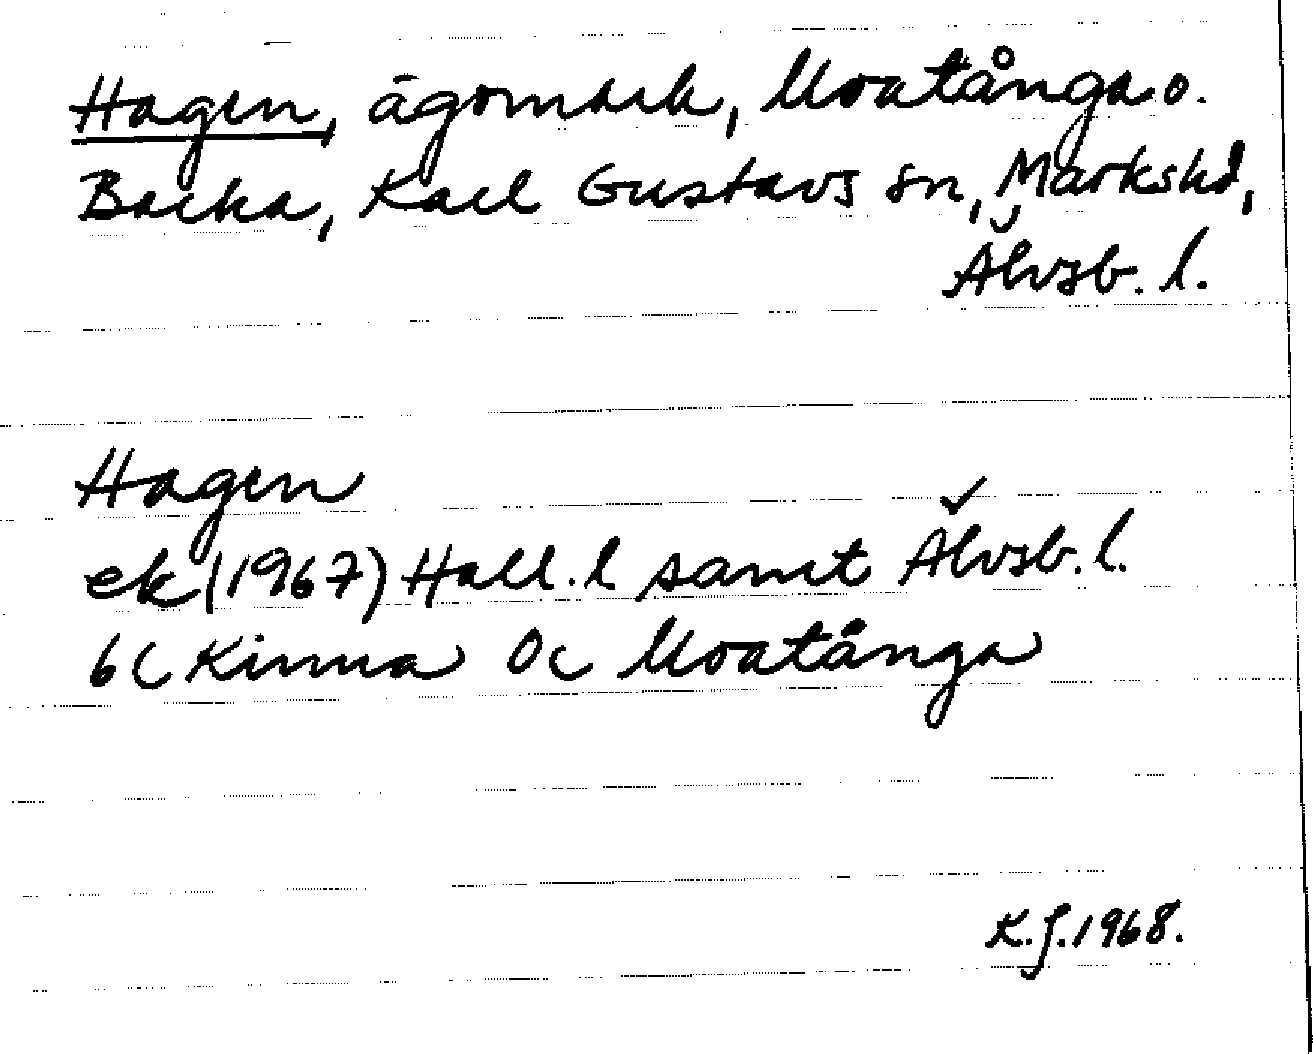 Hagen, ägomark, Moatånga o.
Backa, Karl Gustavs sn, Markshd,
Älvsb. l.
Hagen
ek (1967) Hall. l samt Älvsb. l.
6C Kinna 0c Moatånga
K.J. 1968.